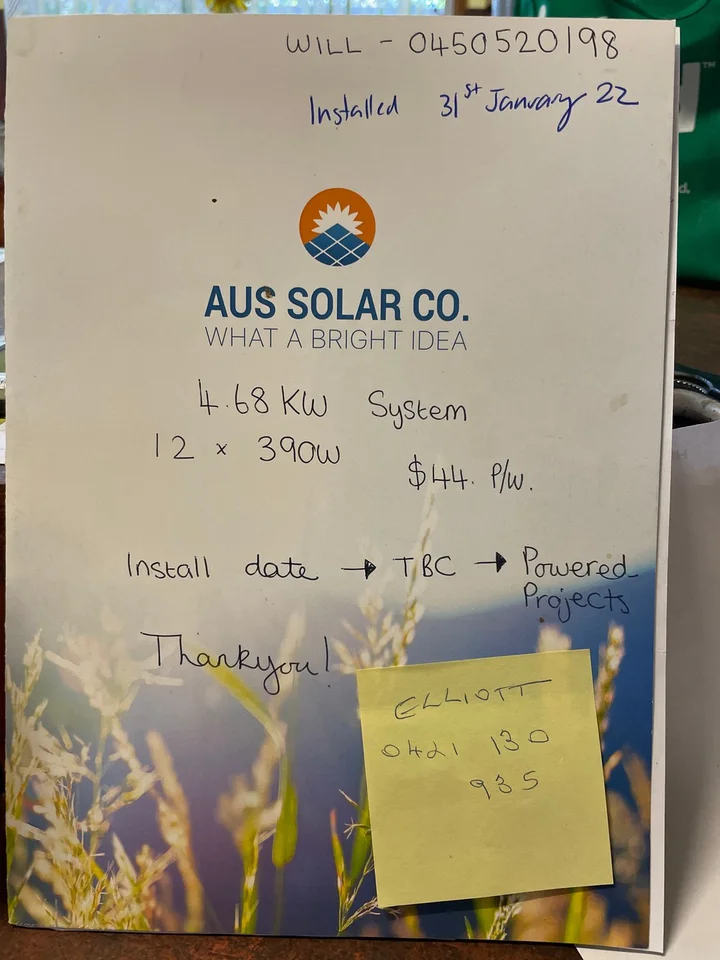 WILL - 0450520198
Installed 31st January 22
AUS SOLAR CO.
WHAT A BRIGHT IDEA
4.68 KW System
12 x 390W
$44. P/W.
Install date → TBC → Powered
Projects
Thankyou!
ELLIOTT
0421 130
935
TM
d.